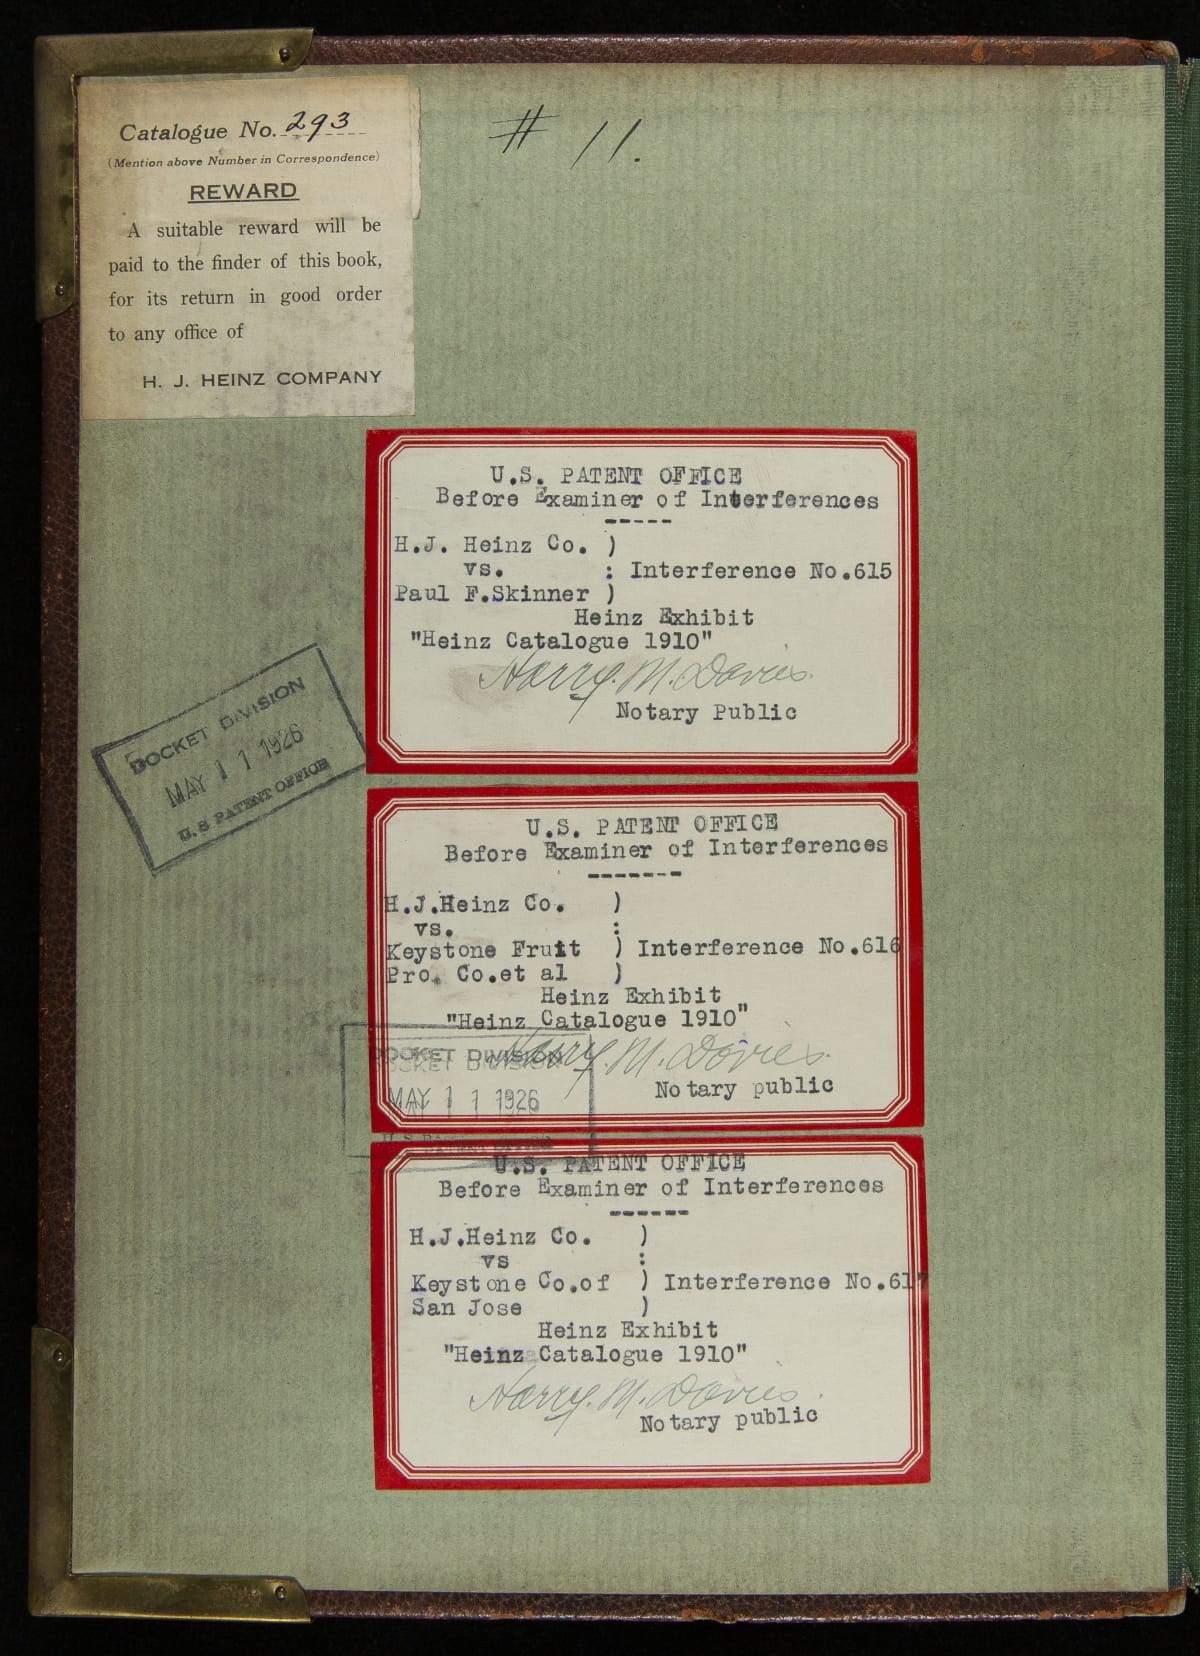 Catalogue No. 293
(Mention above Number in Correspondence)
REWARD
A suitable reward will be
paid to the finder of this book,
for its return in good order
to any office of
H. J. HEINZ COMPANY
# 11.
U.S. PATENT OFFICE
Before Examiner of Interferences
-----
H.J. Heinz Co. )
vs. : Interference No.615
Paul F.Skinner )
Heinz Exhibit
"Heinz Catalogue 1910"
Harry. M. Davies.
Notary Public
DOCKET DIVISION
MAY 11 1926
U.S PATENT OFFICE
U.S. PATENT OFFICE
Before Examiner of Interferences
-------
H.J.Heinz Co. )
vs. :
Keystone Fruit ) Interference No.616
Pro. Co.et al )
Heinz Exhibit
"Heinz Catalogue 1910"
Harry. M. Davies.
Notary public
DOCKET DIVISION
MAY 11 1926
U.S PATENT OFFICE
U.S. PATENT OFFICE
Before Examiner of Interferences
------
H.J.Heinz Co. )
vs :
Keystone Co.of ) Interference No.617
San Jose )
Heinz Exhibit
"Heinz Catalogue 1910"
Harry. M. Davies.
Notary public